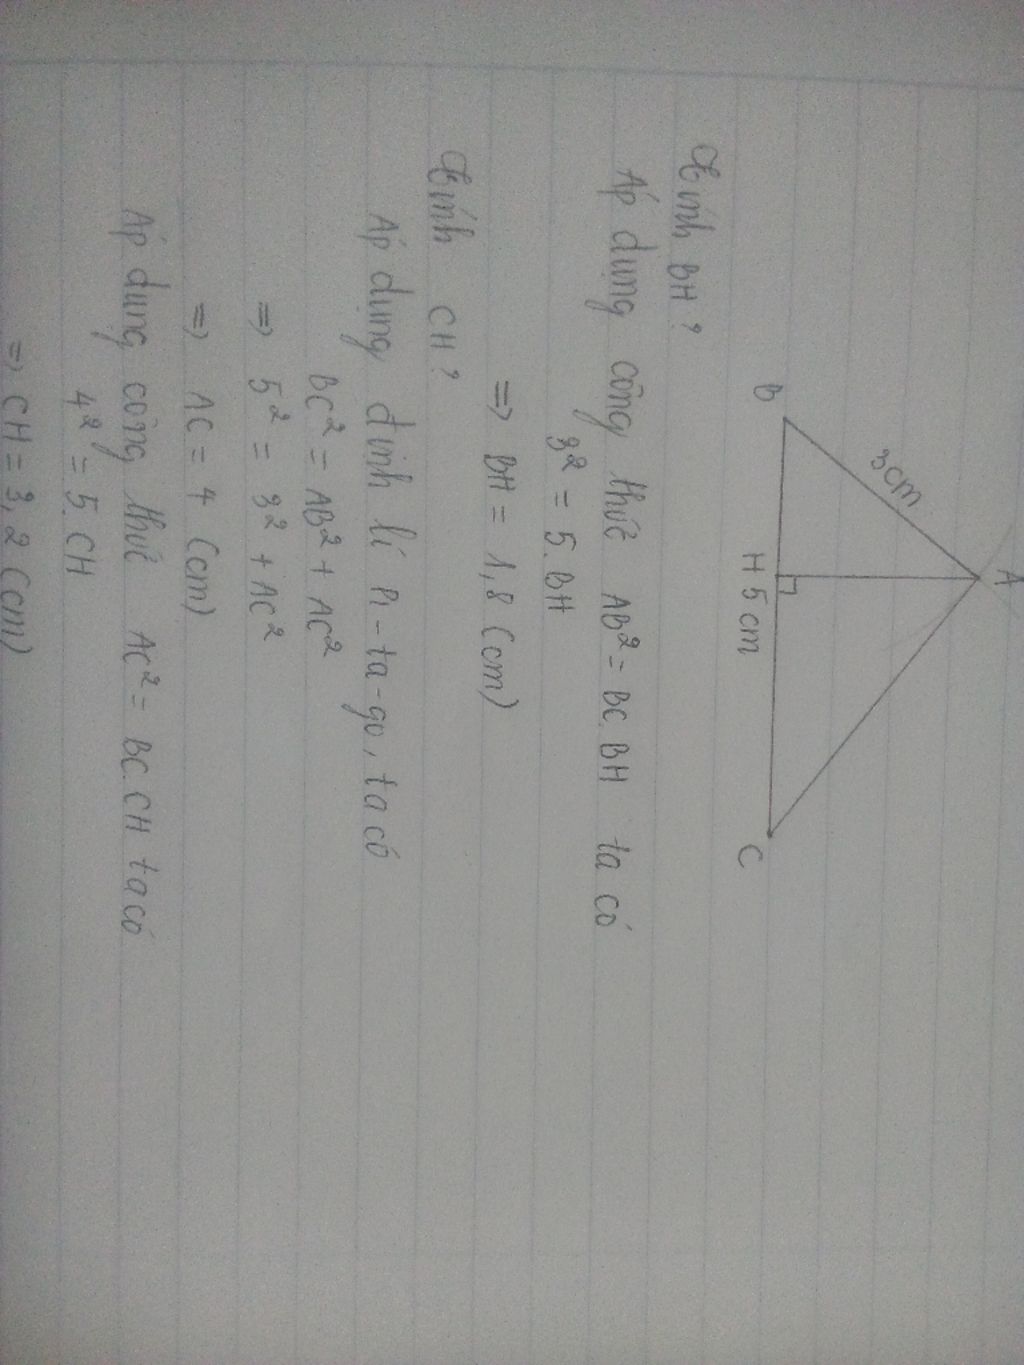 A
3cm
B
H 5cm
C
Tính BH?
Áp dụng công thức AB² = BC.BH ta có
3² = 5.BH
=> BH = 1,8 (cm)
Tính CH?
Áp dụng định lí Pi-ta-go, ta có
BC² = AB² + AC²
=> 5² = 3² + AC²
=> AC = 4 (cm)
Áp dụng công thức AC² = BC.CH ta có
4² = 5.CH
=> CH = 3,2 (cm)